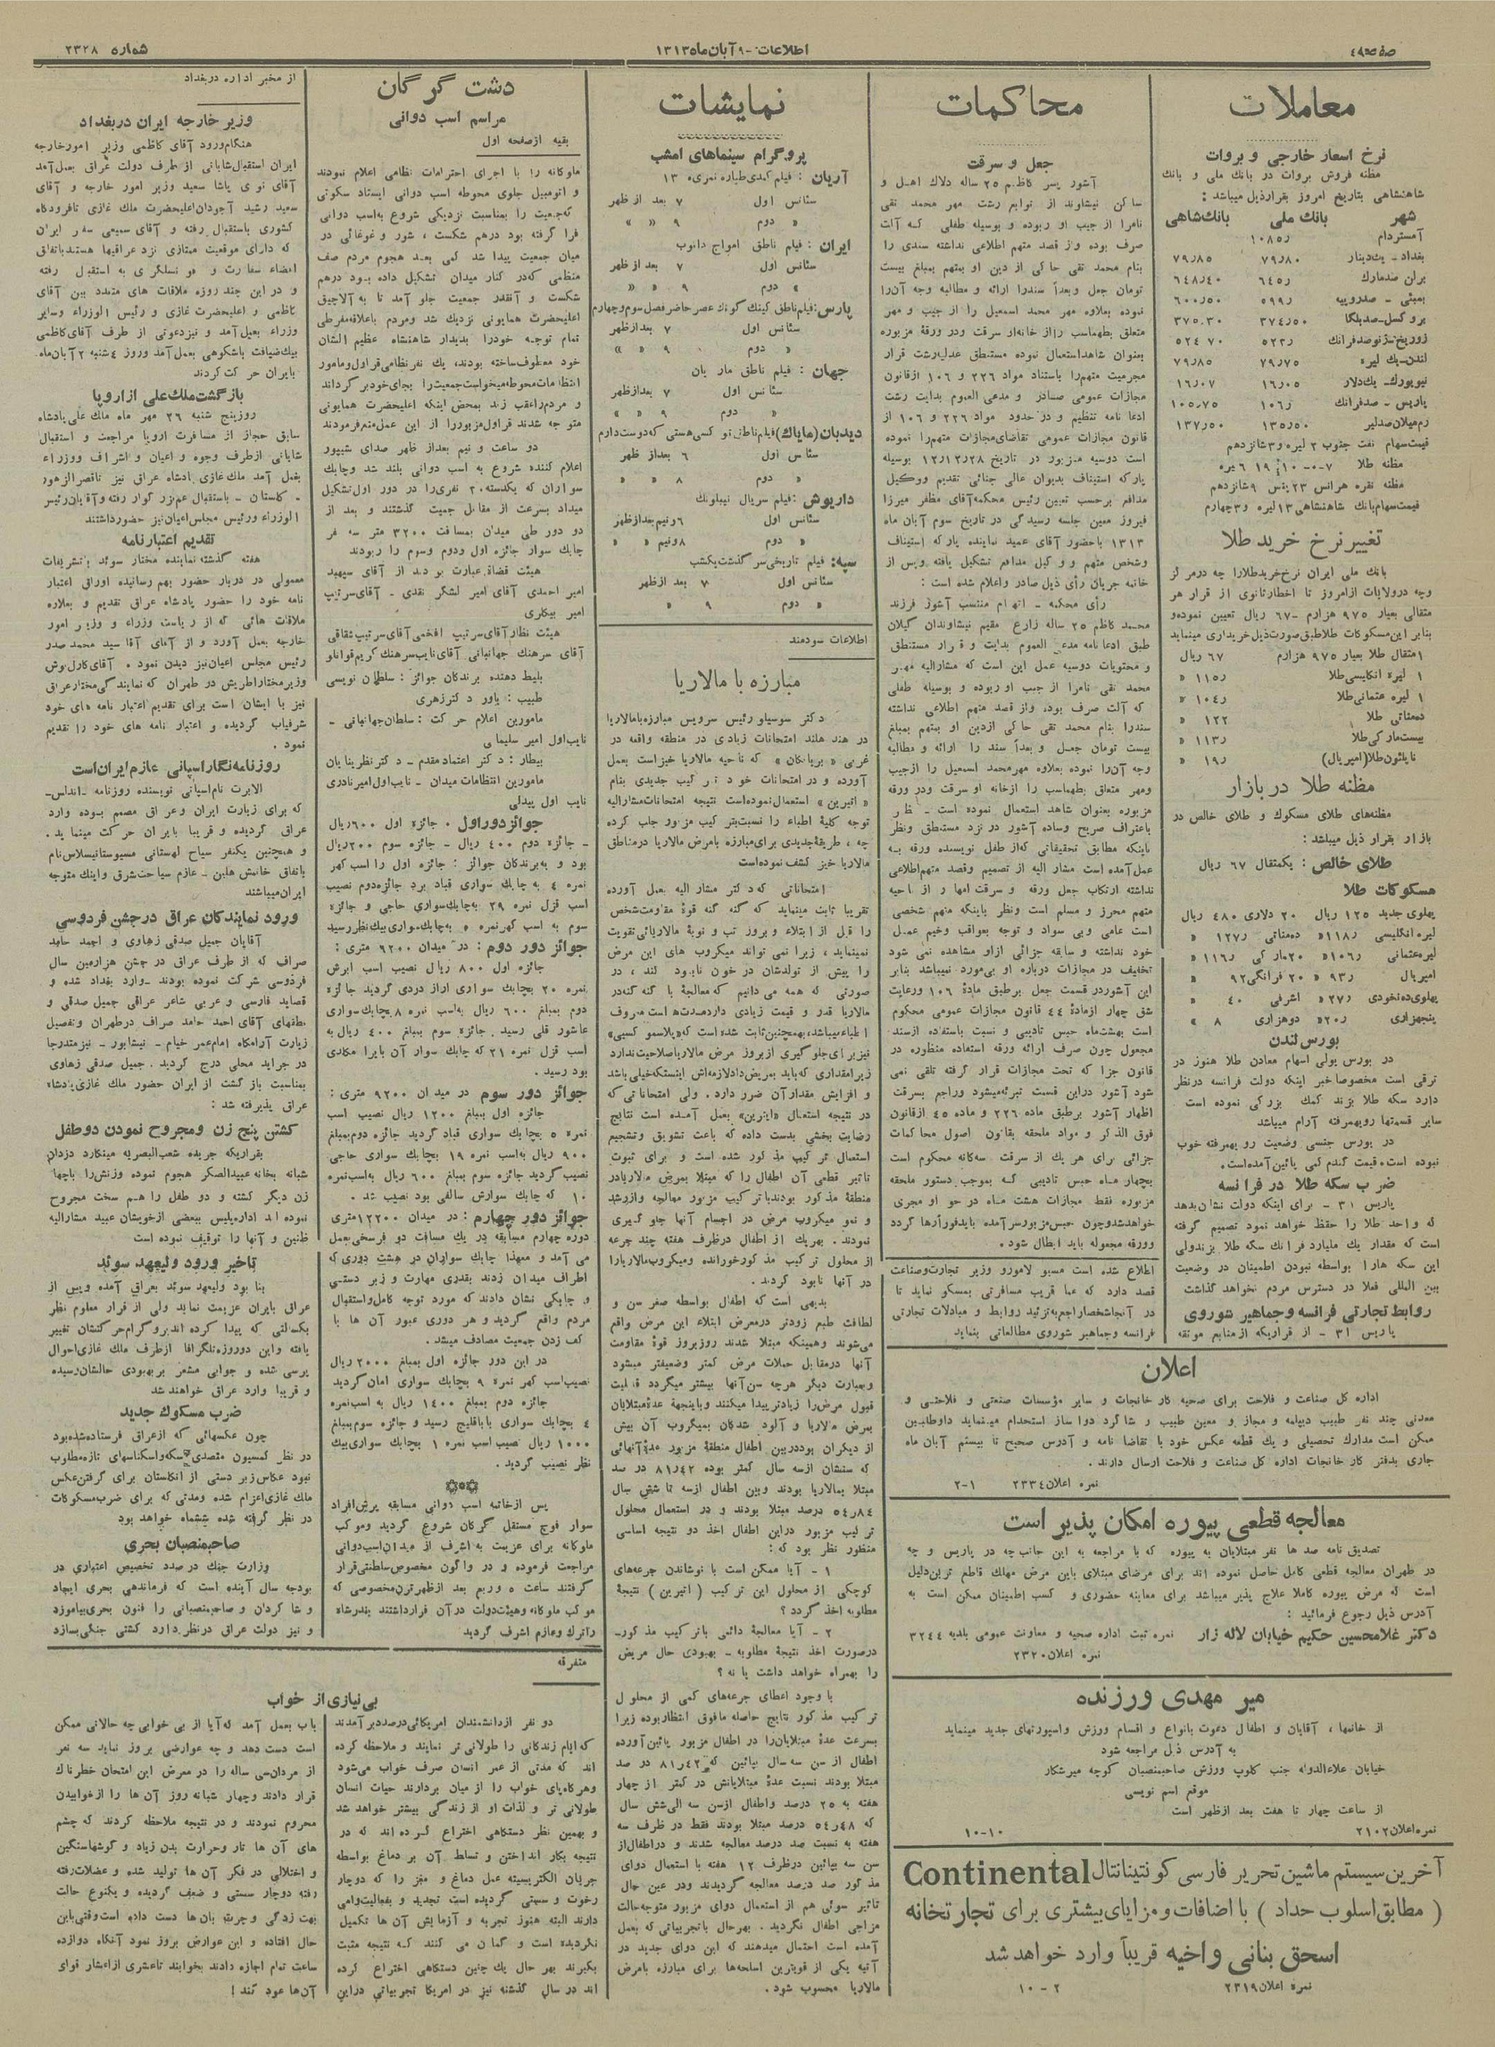 صفحه ۴
اطلاعات - ۹ آبان ماه ۱۳۱۳
شماره ۲۳۲۸
معاملات
نرخ اسعار خارجی و بروات
مظنه فروش بروات در بانک ملی و بانک
شاهنشاهی بتاریخ امروز بقرار ذیل میباشد :
شهر بانک ملی بانک شاهی
آمستردام ۱۰۸۵ر
بغداد - یک دینار ۷۹ر۸۰ ۷۹ر۸۵
برلن صد مارک ۶۴۵ر ۶۴۸ر۴۰
بمبئی - صد روپیه ۵۹۹ر ۶۰۰ر۵۰
بروکسل - صد بلگا ۳۷۴ر۵۰ ۳۷۵.۳۰
لندن - یک لیره ۷۹ر۷۵ ۷۹ر۸۵
نیویورک - یک دلار ۱۶ر۰۵ ۱۶ر۰۷
پاریس - صد فرانک ۱۰۶ر ۱۰۵ر۷۵
رم میلان صد لیر ۱۳۵ر۵۰ ۱۳۷ر۵۰
قیمت سهام نفت جنوب ۲ لیره و ۳ شانزدهم
تغییر نرخ خرید طلا
بانک ملی ایران نرخ خرید طلا را چه در مرکز
وچه در ولایات از امروز تا اخطار ثانوی از قرار هر
مثقالی بعیار ۹۷۵ هزارم - ۶۷ ریال تعیین نموده و
بنابر این مسکوکات طلا طبق صورت ذیل خریداری مینماید
۱ مثقال طلا بعیار ۹۷۵ هزارم ۶۷ ریال
۱ لیره انگلیسی طلا ۱۱۵ر «
۱ لیره عثمانی طلا ۱۰۴ر «
ده مناتی طلا ۱۲۲ «
بیست مارکی طلا ۱۱۳ر «
ناپلئون طلا (امپریال) ۱۹ر «
مظنه طلا در بازار
مظنه های طلای مسکوک و طلای خالص در
بازار بقرار ذیل میباشد :
طلای خالص : یکمثقال ۶۷ ریال
مسکوکات طلا
پهلوی جدید ۱۲۵ ریال ۲۰ دلاری ۴۸۰ ریال
لیره انگلیسی ۱۱۸ر « ده مناتی ۱۲۷ر «
لیره عثمانی ۱۰۶ر « ۲۰ مارکی ۱۱۶ر «
امپریال ۹۳ر « ۲۰ فرانگی ۹۲ «
پهلوی ده نخودی ۲۷ر « اشرفی ۴۰ «
پنجهزاری ۲۰ر « دوهزاری ۸ «
بورس لندن
در بورس پولی اسهام معادن طلا هنوز در
ترقی است مخصوصا خبر اینکه دولت فرانسه در نظر
دارد سکه طلا بزند کمک بزرگی نموده است
سایر قسمتها رویهمرفته آرام میباشد
در بورس جنسی وضعیت رویهمرفته خوب
نبوده است . قیمت گندم کمی پائین آمده است .
ضرب سکه طلا در فرانسه
پاریس ۳۱ - برای اینکه دولت نشان بدهد
که واحد طلا را حفظ خواهد نمود تصمیم گرفته
است که مقدار یک ملیارد فرانک سکه طلا بزند ولی
این سکه هارا بواسطه نبودن اطمینان در وضعیت
بین المللی فعلا در دسترس مردم نخواهد گذاشت
روابط تجارتی فرانسه و جماهیر شوروی
پاریس ۳۱ - از قراریکه از منابع موثقه
محاکمات
جعل و سرقت
آشور پسر کاظم ۲۵ ساله دلاک اهل و
ساکن نیشاوند از توابع رشت مهر محمد تقی
نامرا از جیب او ربوده و بوسیله طفلی که آلت
صرف بوده و از قصد متهم اطلاعی نداشته سندی را
بنام محمد تقی حاکی از دین او بمتهم بمبلغ بیست
تومان جعل و بعداً سند را ارائه و مطالبه وجه آنرا
نموده بعلاوه مهر محمد اسمعیل را از جیب و مهر
متعلق بطهماسب را از خانه او سرقت و در ورقه مزبوره
بعنوان شاهد استعمال نموده مستنطق عدلیه رشت قرار
مجرمیت متهم را باستناد مواد ۲۲۶ و ۱۰۶ از قانون
مجازات عمومی صادر و مدعی العموم بدایت رشت
ادعا نامه تنظیم و در حدود مواد ۲۲۶ و ۱۰۶ از
قانون مجازات عمومی تقاضای مجازات متهم را نموده
است دوسیه مزبور در تاریخ ۱۲/۱۲/۲۸ بوسیله
پارکه استیناف بدیوان عالی جنائی تقدیم و وکیل
مدافع برحسب تعیین رئیس محکمه آقای مظفر میرزا
فیروز معین جلسه رسیدگی در تاریخ سوم آبان ماه
۱۳۱۳ باحضور آقای عمید نماینده پارکه استیناف
وشخص متهم و وکیل مدافع تشکیل یافته و پس از
خاتمه جریان رأی ذیل صادر و اعلام شده است :
رأی محکمه - اتهام منتسب آشور فرزند
محمد کاظم ۲۵ ساله زارع مقیم نیشاوندان گیلان
طبق ادعا نامه مدعی العموم بدایت و قرار مستنطق
و محتویات دوسیه عمل این است که مشارالیه مهر
محمد تقی نامرا از جیب او ربوده و بوسیله طفلی
که آلت صرف بود، و از قصد متهم اطلاعی نداشته
سند را بنام محمد تقی حاکی از دین او بمتهم بمبلغ
بیست تومان جعل و بعداً سند را ارائه و مطالبه
وجه آنرا نموده بعلاوه مهر محمد اسمعیل را از جیب
ومهر متعلق بطهماسب را از خانه او سرقت و در ورقه
مزبوره بعنوان شاهد استعمال نموده است - نظر
باعتراف صریح و ساده آشور در نزد مستنطق و نظر
باینکه مطابق تحقیقاتی که از طفل نویسنده ورقه به
عمل آمده است مشارالیه از تصمیم و قصد متهم اطلاعی
نداشته ارتکاب جعل ورقه و سرقت امهار از ناحیه
متهم محرز و مسلم است و نظر باینکه متهم شخصی
است عامی و بی سواد و توجه بعواقب وخیم عمل
خود نداشته و سابقه جزائی از او مشاهده نمی شود
تخفیف در مجازات درباره او بی مورد نمیباشد بنابر
این آشور در قسمت جعل برطبق مادهٔ ۱۰۶ و رعایت
شق چهار از مادهٔ ۴۴ قانون مجازات عمومی محکوم
است بهشت ماه حبس تادیبی و نسبت باستفاده از سند
مجعول چون صرف ارائه ورقه استفاده منظوره در
قانون جزا که تحت مجازات قرار گرفته تلقی نمی
شود آشور در این قسمت تبرئه میشود و راجع بسرقت
اظهار آشور برطبق ماده ۲۲۶ و ماده ۴۵ از قانون
فوق الذکر و مواد ملحقه بقانون اصول محاکمات
جزائی برای هر یک از سرقت سه گانه محکوم است
بچهار ماه حبس تادیبی که بموجب دستور ملحقه
مزبوره فقط مجازات هشت ماه در حق او مجری
خواهد شد و چون حبس مزبور سر آمده باید فوراً رها گردد
وورقه مجعوله باید ابطال شود .
اطلاع شده است مسیو لامورو وزیر تجارت و صناعت
قصد دارد که عما قریب مسافرتی بمسکو نماید تا
در آنجا شخصا راجع به تزئید روابط و مبادلات تجارتی
فرانسه و جماهیر شوروی مطالعاتی بنماید
اعلان
اداره کل صناعت و فلاحت برای صحیه کارخانجات و سایر مؤسسات صنعتی و فلاحتی و
معدنی چند نفر طبیب دیپلمه و مجاز و معین طبیب و شاگرد دواساز استخدام مینماید داوطلبین
ممکن است مدارک تحصیلی و یک قطعه عکس خود با تقاضا نامه و آدرس صحیح تا بیستم آبان ماه
جاری بدفتر کارخانجات اداره کل صناعت و فلاحت ارسال دارند .
نمره اعلان ۲۳۳۴ ۱-۲
معالجه قطعی پیوره امکان پذیر است
تصدیق نامه صدها نفر مبتلایان به پیوره که با مراجعه به این جانب چه در پاریس و چه
در طهران معالجه قطعی کامل حاصل نموده اند برای مرضای مبتلای باین مرض مهلک قاطع ترین دلیل
است که مرض پیوره کاملا علاج پذیر میباشد برای معاینه حضوری و کسب اطمینان ممکن است به
آدرس ذیل رجوع فرمائید :
دکتر غلامحسین حکیم خیابان لاله زار نمره ثبت اداره صحیه و معاونت عمومی بلدیه ۳۲۴۴
نمره اعلان ۲۳۲۰
میر مهدی ورزنده
از خانمها ، آقایان و اطفال دعوت بانواع و اقسام ورزش و اسپورتهای جدید مینماید
به آدرس ذیل مراجعه شود
خیابان علاءالدوله جنب کلوپ ورزش صاحبمنصبان کوچه میرشکار
موقع اسم نویسی
از ساعت چهار تا هفت بعد از ظهر است
نمره اعلان ۲۱۰۲ ۱۰-۱۰
آخرین سیستم ماشین تحریر فارسی کونتیناننتال Continental
( مطابق اسلوب حداد ) با اضافات و مزایای بیشتری برای تجارتخانه
اسحق بنانی و اخیه قریباً وارد خواهد شد
نمره اعلان ۲۳۱۹ ۲-۱۰
نمایشات
پروگرام سینماهای امشب
آریان : فیلم کمدی طیاره نمره ۱۳
سئانس اول ۷ بعد از ظهر
« دوم ۹ « «
ایران : فیلم ناطق امواج دانوب
سئانس اول ۷ بعد از ظهر
« دوم ۹ « «
پارس : فیلم ناطق کینگ کونگ عصر حاضر فصل سوم و چهارم
سئانس اول ۷ بعد از ظهر
« دوم ۹ « «
جهان : فیلم ناطق ماریان
سئانس اول ۷ بعد از ظهر
« دوم ۹ « «
دیدبان (مایاک) فیلم ناطق تو کسی هستی که دوست دارم
سئانس اول ۶ بعد از ظهر
« دوم ۸ « «
داریوش : فیلم سریال نیبلونگ
سئانس اول ۶ و نیم بعد از ظهر
« دوم ۸ و نیم « «
سپه : فیلم تاریخی سرگذشت یکشب
سئانس اول ۷ بعد از ظهر
« دوم ۹ «
اطلاعات سودمند
مبارزه با مالاریا
دکتر سوسیلو رئیس سرویس مبارزه با مالاریا
در هند هلند امتحانات زیادی در منطقه واقعه در
غربی « بریانکان » که ناحیه مالاریا خیز است بعمل
آورده و در امتحانات خود ترکیب جدیدی بنام
« اتبرین » استعمال نموده است نتیجه امتحانات مشارالیه
توجه کلیهٔ اطباء را نسبت بترکیب مزبور جلب کرده
چه ، طریقهٔ جدیدی برای مبارزه با مرض مالاریا در مناطق
مالاریا خیز کشف نموده است
امتحاناتی که دکتر مشارالیه بعمل آورده
تقریبا ثابت مینماید که گنه گنه قوهٔ مقاومت شخص
را قبل از ابتلاء و بروز تب و نوبهٔ مالاریائی تقویت
نمینماید ، زیرا نمی تواند میکروب های این مرض
را پیش از تولدشان در خون نابود کند ، در
صورتی که همه می دانیم که معالجهٔ با گنه گنه در
مالاریا قدر و قیمت زیادی دارد مدت ها است معروف
اطباء میباشد ، بهمچنین ثابت شده است که «پلاسموکسین»
نیز برای جلوگیری از بروز مرض مالاریا صلاحیت ندارد
زیرا مقداری که باید بمریض داد لازمه اش اینستکه خیلی باشد
و افزایش مقدار آن ضرر دارد . ولی امتحاناتی که
در نتیجه استعمال « اتبرین » بعمل آمده است نتایج
رضایت بخشی بدست داده که باعث تشویق و تشجیع
استعمال ترکیب مذکور شده است و برای ثبوت
تاثیر قطعی آن اطفال را که مبتلا بمرض مالاریا در
منطقهٔ مذکور بودند با ترکیب مزبور معالجه و از رشد
و نمو میکروب مرض در اجسام آنها جلوگیری
نمودند . بهر یک از اطفال در ظرف هفته چند جرعه
از محلول ترکیب مذکور خورانده و میکروب مالاریا را
در آنها نابود کردند .
بدیهی است که اطفال بواسطه صغر سن و
لطافت طبع زودتر در معرض ابتلاء این مرض واقع
می شوند و همینکه مبتلا شدند روز بروز قوهٔ مقاومت
آنها در مقابل حملات مرض کمتر و ضعیفتر میشود
و بعبارت دیگر هرچه سن آنها بیشتر میگردد قابلیت
قبول مرض را زیادتر پیدا میکنند و باینجهة عدهٔ مبتلایان
بمرض مالاریا و آلوده شدگان بمیکروب آن بیش
از دیگران بودند بین اطفال منطقهٔ مزبور عدهٔ آنهائی
که سنشان از سه سال کمتر بوده ۸۱ر۴۲ در صد
مبتلا بمالاریا بودند و بین اطفال از سه تا شش سال
۵۴ر۸۴ درصد مبتلا بودند و در استعمال محلول
ترکیب مزبور در این اطفال اخذ دو نتیجه اساسی
منظور نظر بود که :
۱ - آیا ممکن است با نوشاندن جرعه های
کوچکی از محلول این ترکیب ( اتبرین ) نتیجهٔ
مطلوبه اخذ گردد ؟
۲ - آیا معالجهٔ دائمی با ترکیب مذکور
درصورت اخذ نتیجهٔ مطلوبه - بهبودی حال مریض
را بهمراه خواهد داشت یا نه ؟
با وجود اعطای جرعه های کمی از محلول
ترکیب مذکور نتایج حاصله مافوق انتظار بوده زیرا
بسرعت عدهٔ مبتلایان را در اطفال مزبور پائین آورده
اطفال از سن سه سال بپائین که ۸۱ر۴۲ در صد
مبتلا بودند نسبت عدهٔ مبتلایانش در کمتر از چهار
هفته به ۲۵ درصد و اطفال از سن سه الی شش سال
که ۵۴ر۴۸ درصد مبتلا بودند فقط در ظرف سه
هفته به نسبت صد درصد معالجه شدند و در اطفال از
سن سه بپائین در ظرف ۱۲ هفته با استعمال دوای
مذکور صد درصد معالجه گردیدند و در عین حال
تاثیر سوئی هم از استعمال دوای مزبور متوجه حالت
مزاجی اطفال نگردید . بهر حال با تجربیاتی که بعمل
آمده است احتمال میدهند که این دوای جدید در
آتیه یکی از قویترین اسلحه ها برای مبارزه با مرض
مالاریا محسوب شود .
دشت گرگان
مراسم اسب دوانی
بقیه از صفحه اول
ملوکانه را با اجرای احترامات نظامی اعلام نمودند
و اتومبیل جلوی محوطه اسب دوانی ایستاد سکوتی
که جمعیت را بمناسبت نزدیکی شروع به اسب دوانی
فرا گرفته بود درهم شکست ، شور و غوغائی در
میان جمعیت پیدا شد کمی بعد هجوم مردم صف
منظمی که در کنار میدان تشکیل داده بود درهم
شکست و آنقدر جمعیت جلو آمد تا به آلاچیق
اعلیحضرت همایونی نزدیک شد و مردم با علاقه مفرطی
تمام توجه خود را بدیدار شاهنشاه عظیم الشان
خود معطوف ساخته بودند ، یک نفر نظامی قراول و مامور
انتظامات محوطه میخواست جمعیت را بجای خود برگرداند
و مردم را عقب زند بمحض اینکه اعلیحضرت همایونی
متوجه شدند قراول مزبور را از این عمل منع فرمودند
دو ساعت و نیم بعد از ظهر صدای شیپور
اعلام کننده شروع به اسب دوانی بلند شد و چابک
سواران که یکدسته ۲۰ نفری را در دور اول تشکیل
میداد بسرعت از مقابل جمعیت گذشتند و بعد از
دو دور طی میدان بمسافت ۳۲۰۰ متر سه نفر
چابک سوار جائزه اول و دوم و سوم را ربودند
هیئت قضاة عبارت بودند از آقای سپهبد
امیر احمدی آقای امیر لشگر نقدی - آقای سرتیپ
امیر بیگلری
هیئت نظار آقای سرتیپ افخمی آقای سرتیپ شقاقی
آقای سرهنگ جهانبانی آقای نایب سرهنگ کریم قوانلو
بلیط دهنده برندگان جوائز : سلطان نویسی
طبیب : یاور دکتر زهری
مامورین اعلام حرکت : سلطان جهانبانی -
نایب اول امیر سلیمانی
بیطار : دکتر اعتماد مقدم - دکتر نظر بنایان
مامورین انتظامات میدان - نایب اول امیر نادری
نایب اول بیدلی
جوائز دور اول . جائزه اول ۶۰۰ ریال
- جائزه دوم ۴۰۰ ریال - جائزه سوم ۲۰۰ ریال
بود و به برندگان جوائز : جائزه اول را اسب کهر
نمره ۴ به چابک سواری قباد برد جائزه دوم نصیب
اسب قزل نمره ۲۹ به چابک سواری حاجی و جائزه
سوم به اسب کهر نمره ۵ به چابک سواری بیک نظر رسید
جوائز دور دوم : در میدان ۶۲۰۰ متری :
جائزه اول ۸۰۰ ریال نصیب اسب ابرش
نمره ۲۰ بچابک سواری اراز دردی گردید جائزه
دوم بمبلغ ۶۰۰ ریال به اسب نمره ۸ بچابک سواری
عاشور قلی رسید . جائزه سوم بمبلغ ۴۰۰ ریال به
اسب قزل نمره ۲۱ که چابک سوار آن بایرام مکادی
بود رسید .
جوائز دور سوم در میدان ۹۲۰۰ متری :
جائزه اول بمبلغ ۱۲۰۰ ریال نصیب اسب
نمره ۵ بچابک سواری قباد گردید جائزه دوم بمبلغ
۹۰۰ ریال به اسب نمره ۱۹ بچابک سواری حاجی
نصیب گردید جائزه سوم بمبلغ ۶۰۰ ریال به اسب نمره
۱۰ که چابک سوارش سالقی بود نصیب شد .
جوائز دور چهارم : در میدان ۱۲۲۰۰ متری
دوره چهارم مسابقه در یک مسافت دو فرسخی بعمل
می آمد و معهذا چابک سواران در هشت دوری که
اطراف میدان زدند بقدری مهارت و زبر دستی
و چابکی نشان دادند که مورد توجه کامل و استقبال
مردم واقع گردید و هر دوری عبور آن ها با
کف زدن جمعیت مصادف میشد .
در این دور جائزه اول بمبلغ ۲۰۰۰ ریال
نصیب اسب کهر نمره ۹ بچابک سواری امان گردید
جائزه دوم بمبلغ ۱۴۰۰ ریال به اسب نمره
۴ بچابک سواری باباقلیچ رسید و جائزه سوم بمبلغ
۱۰۰۰ ریال نصیب اسب نمره ۱ بچابک سواری بیک
نظر نصیب گردید .
پس از خاتمه اسب دوانی مسابقه پرش افراد
سوار فوج مستقل گرگان شروع گردید و موکب
ملوکانه برای عزیمت به اشرف از میدان اسب دوانی
مراجعت فرموده و در واگون مخصوص سلطنتی قرار
گرفتند ساعت ۵ و ربع بعد از ظهر ترن مخصوصی که
موکب ملوکانه و هیئت دولت در آن قرار داشتند بندر شاه
را ترک و عازم اشرف گردید
از مخبر اداره در بغداد
وزیر خارجه ایران در بغداد
هنگام ورود آقای کاظمی وزیر امور خارجه
ایران استقبال شایانی از طرف دولت عراق بعمل آمد
آقای نوری پاشا سعید وزیر امور خارجه و آقای
سعید رشید آجودان اعلیحضرت ملک غازی تا فرودگاه
کشوری باستقبال رفته و آقای سمیعی سفیر ایران
که دارای موقعیت ممتازی نزد عراقیها هستند باتفاق
اعضاء سفارت و قونسلگری به استقبال رفته
و در این چند روزه ملاقات های متعدد بین آقای
کاظمی و اعلیحضرت غازی و رئیس الوزراء و سایر
وزراء بعمل آمد و نیز دعوتی از طرف آقای کاظمی
بیک ضیافت باشکوهی بعمل آمد و روز ۴ شنبه ۲ آبان ماه
بایران حرکت کردند
بازگشت ملک علی از اروپا
روز پنج شنبه ۲۶ مهر ماه ملک علی پادشاه
سابق حجاز از مسافرت اروپا مراجعت و استقبال
شایانی از طرف وجوه و اعیان و اشراف و وزراء
بعمل آمد ملک غازی پادشاه عراق نیز تا قصر الزهور
- کلستان - باستقبال عم بزرگوار رفته و آقایان رئیس
الوزراء و رئیس مجلس اعیان نیز حضور داشتند
تقدیم اعتبارنامه
هفته گذشته نماینده مختار سوئد با تشریفات
معمولی در دربار حضور بهم رسانیده اوراق اعتبار
نامه خود را حضور پادشاه عراق تقدیم و بعلاوه
ملاقات هائی که از ریاست وزراء و وزیر امور
خارجه بعمل آورد و از آقای آقا سید محمد صدر
رئیس مجلس اعیان نیز دیدن نمود . آقای کارل وش
وزیر مختار اطریش در طهران که نمایندگی مختار عراق
نیز با ایشان است برای تقدیم اعتبار نامه های خود
شرفیاب گردیده و اعتبار نامه های خود را تقدیم
نمود .
روزنامه نگار اسپانی عازم ایران است
آلابرت نام اسپانی نویسنده روزنامه - اندلس -
که برای زیارت ایران و عراق مصمم بوده وارد
عراق گردیده و قریبا بایران حرکت مینماید .
و همچنین یکنفر سیاح لهستانی مسیوستانیسلاس نام
باتفاق خانمش هلین - عازم سیاحت شرق و اینک متوجه
ایران میباشند
ورود نمایندگان عراق در جشن فردوسی
آقایان جمیل صدقی زهاوی و احمد حامد
صراف که از طرف عراق در جشن هزارمین سال
فردوسی شرکت نموده بودند - وارد بغداد شده و
قصاید فارسی و عربی شاعر عراقی جمیل صدقی و
نطقهای آقای احمد حامد صراف در طهران و تفصیل
زیارت آرامگاه امام عمر خیام - نیشابور - نیز مندرجا
در جراید محلی درج گردید . جمیل صدقی زهاوی
بمناسبت بازگشت از ایران حضور ملک غازی پادشاه
عراق پذیرفته شد :
کشتن پنج زن و مجروح نمودن دو طفل
بقراریکه جریده شعب البصریه مینگارد دزدان
شبانه بخانه عبید العسکر هجوم نموده و زنش را با چهار
زن دیگر کشته و دو طفل را هم سخت مجروح
نموده اند اداره پلیس ببعضی از خویشان عبید مشارالیه
ظنین و آنها را توقیف نموده است
تاخیر ورود ولیعهد سوئد
بنا بود ولیعهد سوئد بعراق آمده و پس از
عراق بایران عزیمت نماید ولی از قرار معلوم نظر
بکسالتی که پیدا کرده اند پروگرام حرکتشان تغییر
یافته و این دو روزه تلگرافا از طرف ملک غازی احوال
پرسی شده و جوابی مشعر بر بهبودی حالشان رسیده
و قریبا وارد عراق خواهند شد
ضرب مسکوک جدید
چون عکسهائی که از عراق فرستاده شده بود
در نظر کمسیون متصدی سکه و اسکناسهای تازه مطلوب
نبود عکاس زبر دستی از انگلستان برای گرفتن عکس
ملک غازی اعزام شده و مدتی که برای ضرب مسکوکات
در نظر گرفته شده ششماه خواهد بود
صاحبمنصبان بحری
وزارت جنگ در صدد تخصیص اعتباری در
بودجه سال آینده است که فرماندهی بحری ایجاد
و شاگردان و صاحبمنصبانی را فنون بحری بیاموزد
و نیز دولت عراق در نظر دارد کشتی جنگی بسازد
متفرقه
بی نیازی از خواب
دو نفر از دانشمندان امریکائی درصدد برآمدند
که ایام زندگانی را طولانی تر نمایند و ملاحظه کرده
اند که مدتی از عمر انسان صرف خواب می شود
و هرگاه پای خواب را از میان بردارند حیات انسان
طولانی تر و لذات او از زندگی بیشتر خواهد شد
و بهمین نظر دستگاهی اختراع کرده اند که در
نتیجه بکار انداختن و تسلط آن بر دماغ بواسطه
جریان الکتریسیته عمل دماغ و مغز را که دوچار
رخوت و سستی گردیده است تجدید و بفعالیت وامی
دارند البته هنوز تجربه و آزمایش آن ها تکمیل
نگردیده است و گمان می کنند که نتیجه مثبت
بگیرند بهر حال یک چنین دستگاهی اختراع کرده
اند در سال گذشته نیز در امریکا تجربیاتی در این
باب بعمل آمد که آیا از بی خوابی چه حالاتی ممکن
است دست دهد و چه عوارضی بروز نماید سه نفر
از مردان سی ساله را در معرض این امتحان خطرناک
قرار دادند و چهار شبانه روز آن ها را از خوابیدن
محروم نمودند و در نتیجه ملاحظه کردند که چشم
های آن ها تار و حرارت بدن زیاد و گوشها سنگین
و اختلالی در فکر آن ها تولید شده و عضلات رفته
رفته دوچار سستی و ضعف گردیده و یکنوع حالت
بهت زدگی و چرت بآن ها دست داده است وقتی باین
حال افتاده و این عوارض بروز نمود آنگاه دوازده
ساعت تمام اجازه دادند بخوابند تا عشری از اعشار قوای
آن ها عود کند !